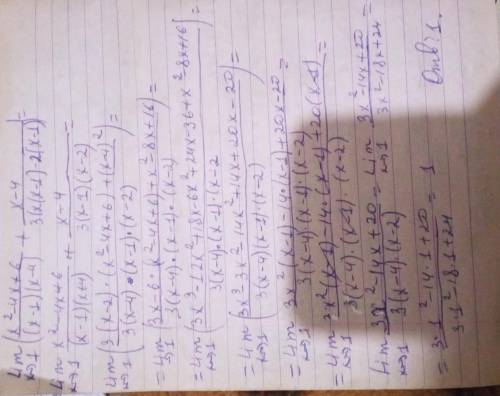 lim x→1 ( (x²-4x+6)/((x-1)(x-4)) + (x-4)/(3(x-1)2(x-1)) ) =
lim x→1 (x²-4x+6)/((x-1)(x+4)) + (x-4)/(3(x-1)(x-2)) =
lim x→1 ( (3(x-2)·(x²-4x+6)+(x-4)²)/(3(x-4)·(x-1)·(x-2)) ) =
= lim x→1 ( (3x-6·(x²-4x+6)+x²-8x+16)/(3(x-4)·(x-1)·(x-2)) ) =
= lim x→1 ( (3x³-12x²+18x-6x²+24x-36+x²-8x+16)/(3(x-4)·(x-1)·(x-2)) ) =
= lim x→1 ( (3x³-3x²-14x²+14x+20x-20)/(3(x-4)(x-1)·(x-2)) ) =
= lim x→1 (3x²·(x-1)-14·(x-1)+20x-20)/(3(x-4)·(x-1)·(x-2)) =
= lim x→1 (3x²(x-1)-14·(x-1)+20(x-1))/(3(x-4)·(x-1)·(x-2)) =
lim x→1 (3x²-14x+20)/(3(x-4)·(x-2)) = lim x→1 (3x²-14x+20)/(3x²-18x+24) =
= (3·1²-14·1+20)/(3·1²-18·1+24) = 1 Отв: 1.